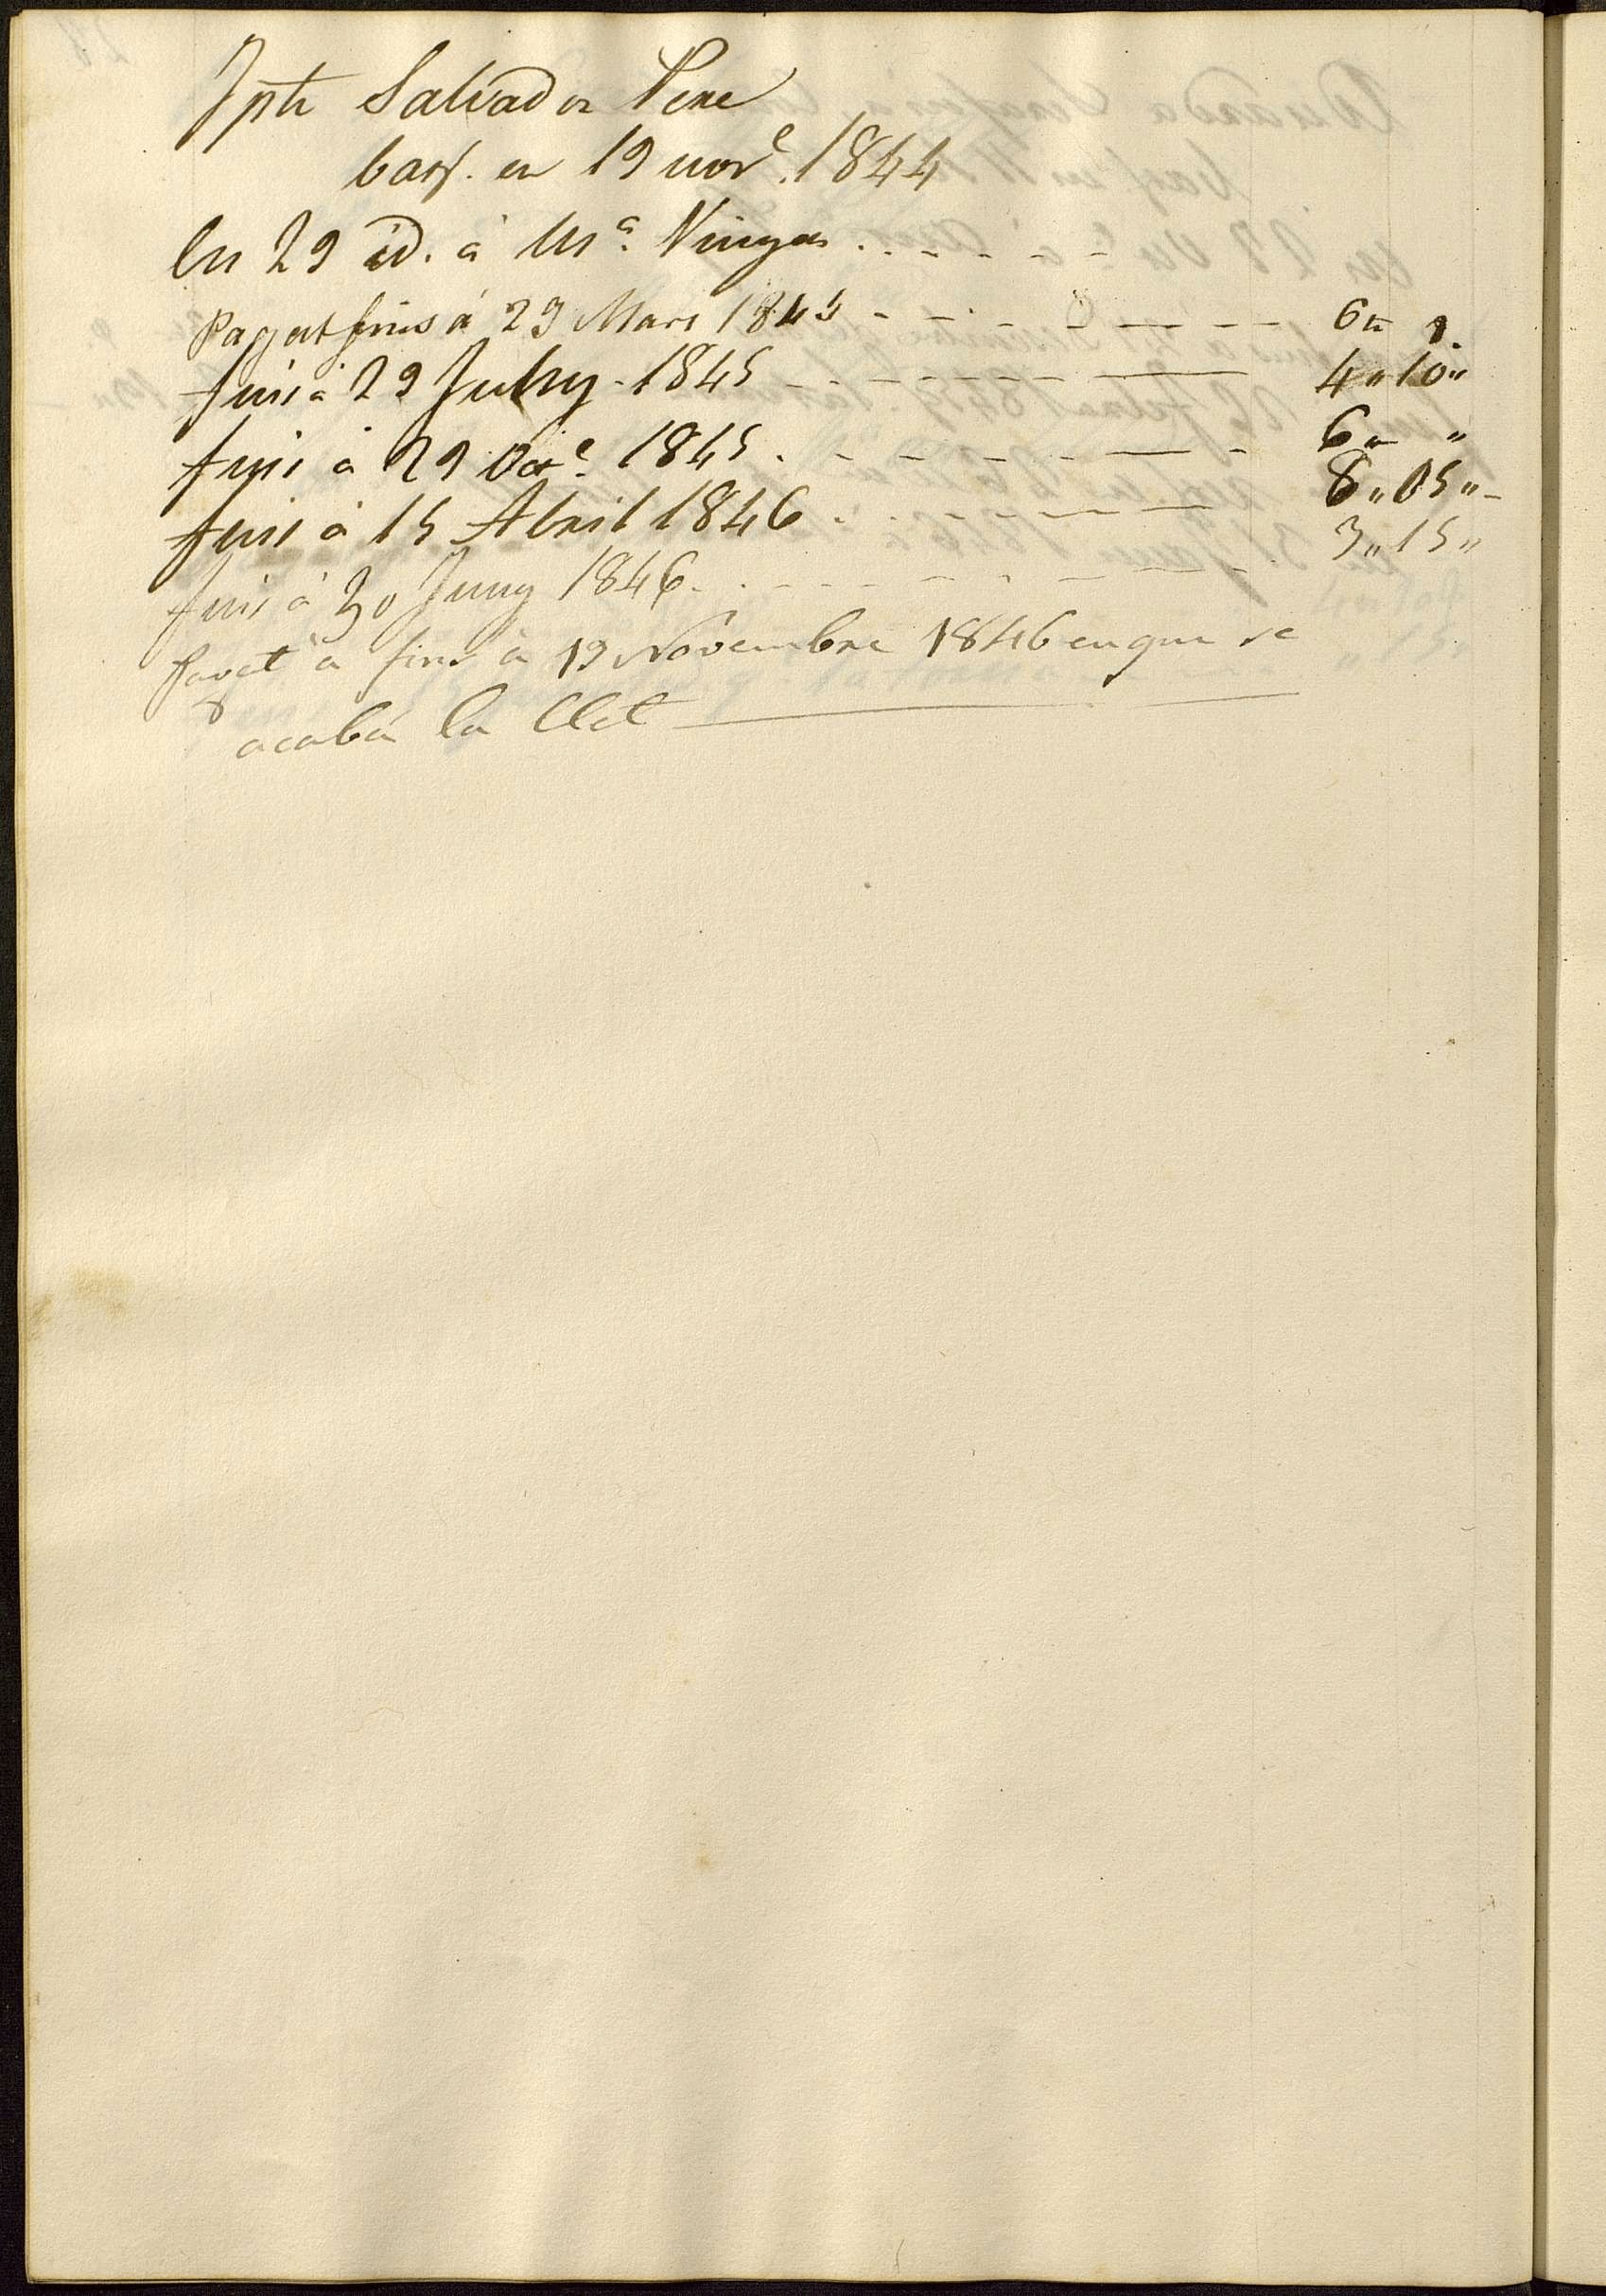 Jph Salvador Pere
bapt. en 19 nov.e 1844
En 29 id. à M.a Vinyas
Pagat fins à 29 Mars 1845 6 "
fins à 29 Juliy 1845 4 " 10 "
fins à 29 Oct.e 1845 6 " "
fins à 15 Abril 1846 8 " 05 "
fins à 30 Juny 1846 3 " 15 "
fins à 19 Novembre 1846 en que se
acabá la Llet